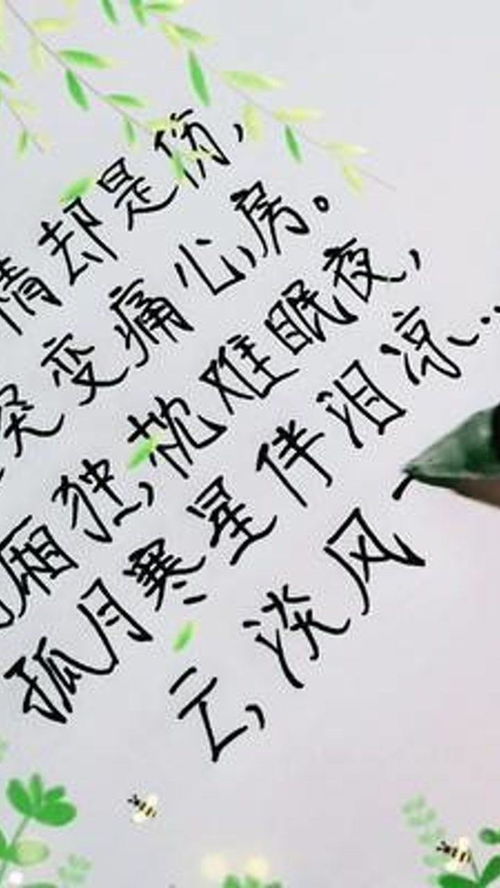 情却是伤，
突变痛心房。
厢独，枕难眠夜，
孤月寒星伴泪凉…
云，淡风